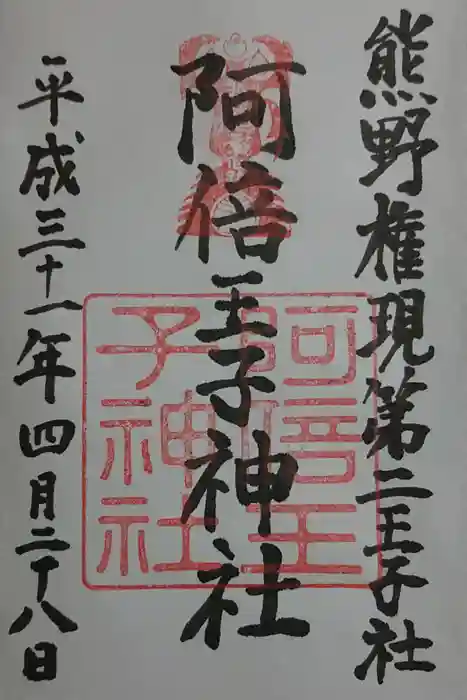 熊野権現第二王子社
阿倍王子神社
平成三十一年四月二十八日
阿倍王
子神社